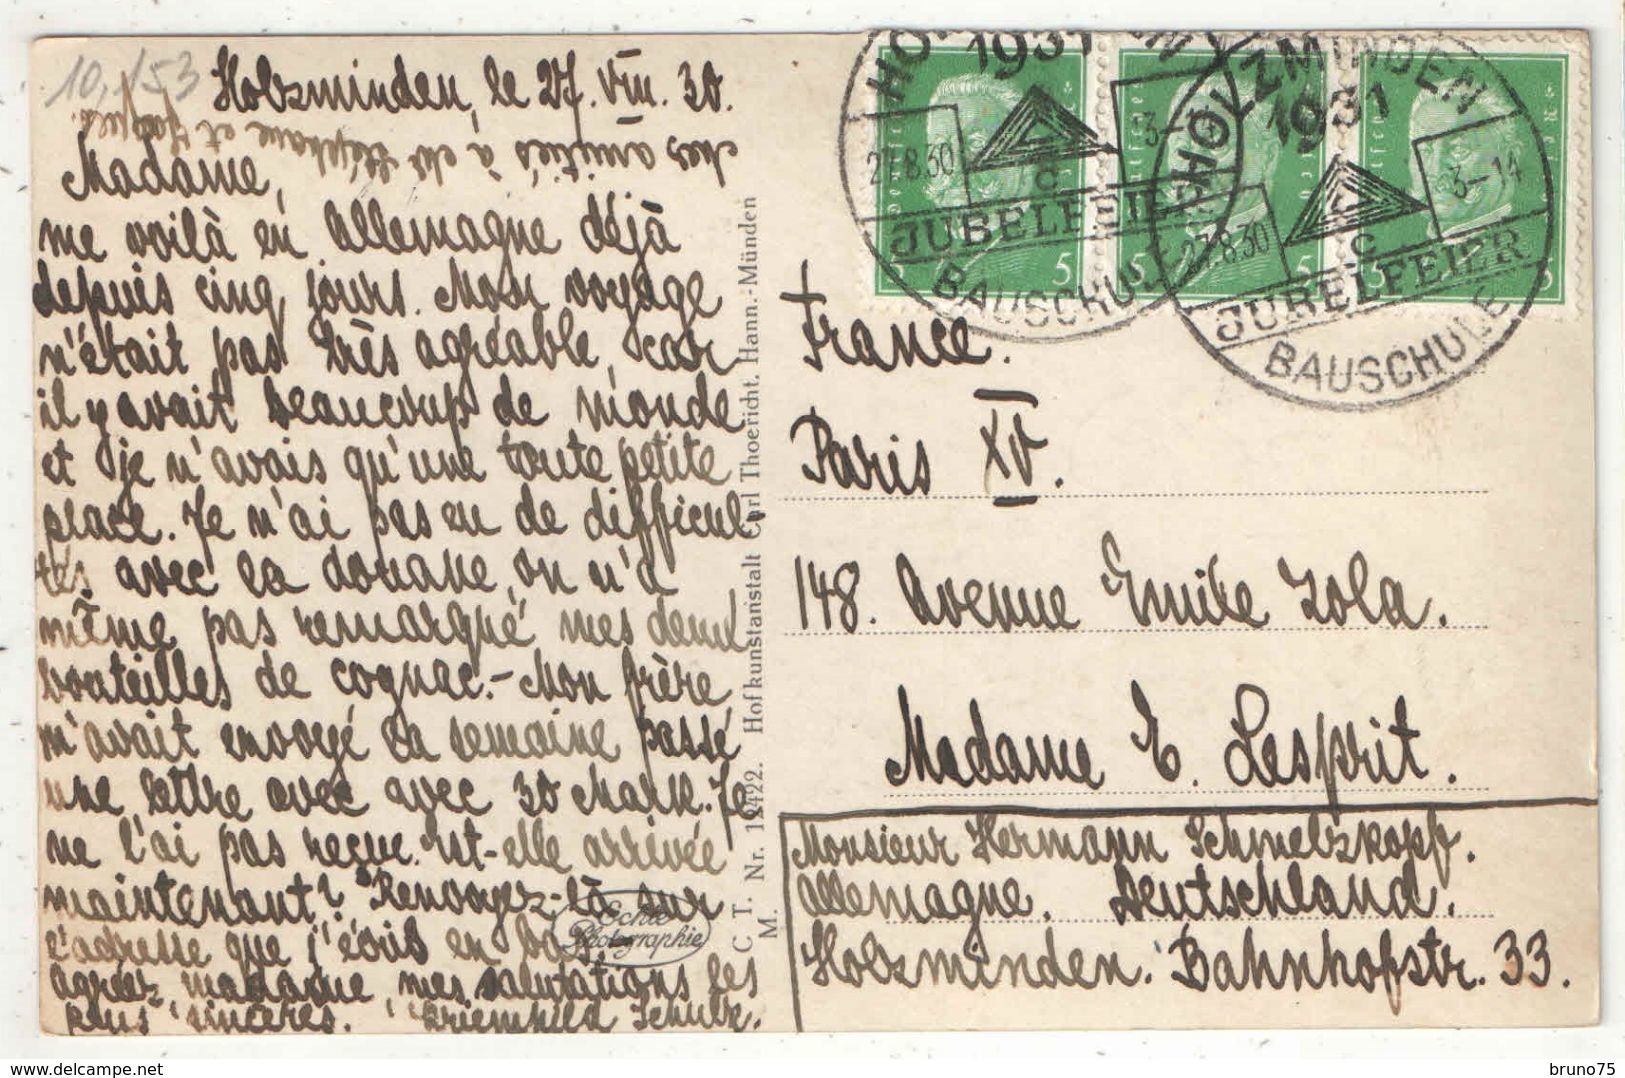 10,153
Holzminden, le 27. VIII. 30.
Madame,
me voilà en Allemagne déjà
depuis cinq jours. Mon voyage
n'était pas très agréable, car
il y avait beaucoup de monde
et je n'avais qu'une toute petite
place. Je n'ai pas eu de difficul-
tés avec la douane, on n'a
même pas remarqué mes deux
bouteilles de cognac.- Mon frère
m'avait envoyé la semaine passé
une lettre avec avec 30 Mark. Je
ne l'ai pas reçue. Est-elle arrivée
maintenant? Renvoyez-là sur
l'adresse que j'écris en bas.
agréez, madame, mes salutations les
plus sincères. Kriemhild Schulz.
mes amitiés à Stéphane et Jacques.
C. T. M. Nr. 12422. Hofkunstanstalt Carl Thoericht. Hann.-Münden
Echte
Photographie
HOLZMINDEN
1931
27.8.30
3-14
C
JUBELFEIER
BAUSCHULE
HOLZMINDEN
1931
27.8.30
3-14
C
JUBELFEIER
BAUSCHULE
5 5
5 5
5 5
France.
Paris XV.
148. Avenue Emile Zola.
Madame E. Lesprit.
Monsieur Hermann Schmelzkopf.
Allemagne. Deutschland.
Holzminden. Bahnhofstr. 33.
bruno75
www.delcampe.net